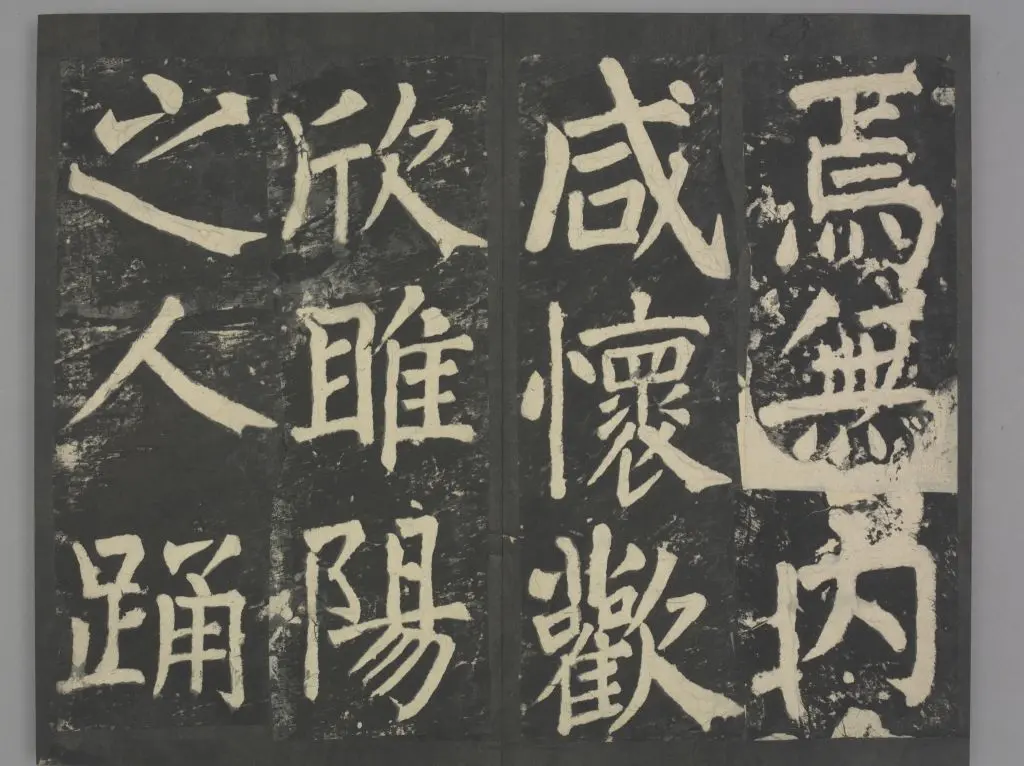 焉無內
咸懷歡
欣睢陽
之人踊